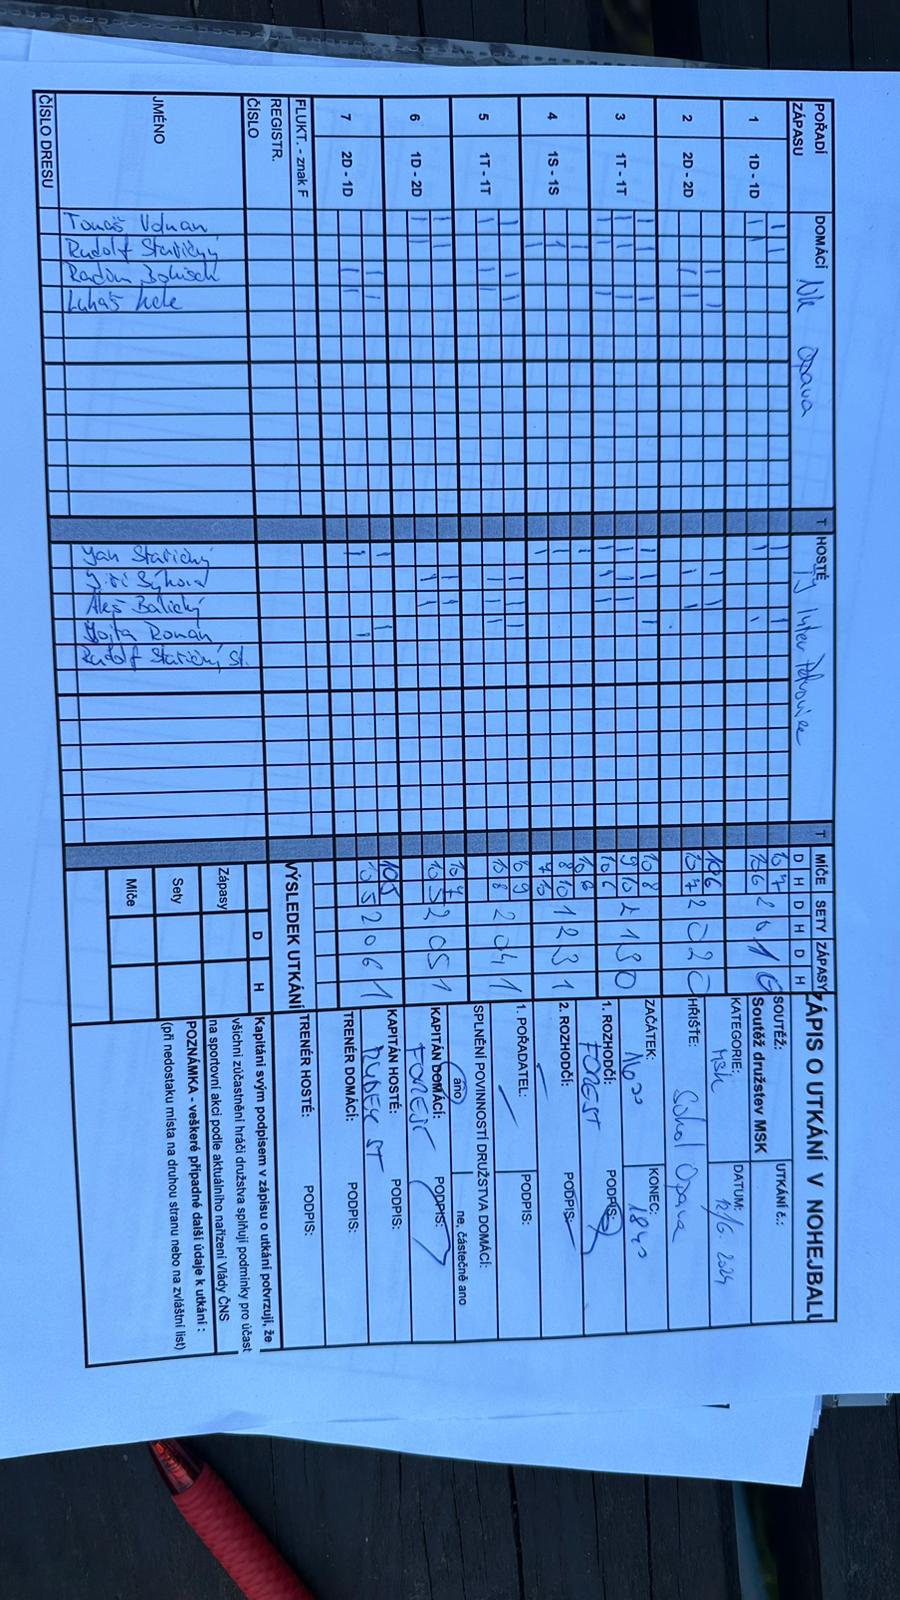 ZÁPIS O UTKÁNÍ V NOHEJBALU
POŘADÍ ZÁPASU
DOMÁCÍ NK Opava
T
HOSTÉ Inter Petrovice
T
MÍČE SETY ZÁPASY
D H D H D H
1 1D - 1D
10 7
10 6 2 0 1 0
2 2D - 2D
10 6
10 7 2 0 2 0
3 1T - 1T
10 8
9 10
10 6 2 1 3 0
4 1S - 1S
10 6
8 10
7 10 1 2 3 1
5 1T - 1T
10 9
10 8 2 0 4 1
6 1D - 2D
10 7
10 5 2 0 5 1
7 2D - 1D
10 5
10 5 2 0 6 1
FLUKT. - znak F
REGISTR.
ČÍSLO
JMÉNO
ČÍSLO DRESU
Tomáš
Rudolf Stařičný
Radim
Lukáš
Jan Stařičný
Jiří Sýkora
Aleš Balický
Vojta Roman
Rudolf Stařičný st.
SOUTĚŽ:
Soutěž družstev MSK
UTKÁNÍ č.:
KATEGORIE:
MSK
DATUM:
12/6. 2024
HŘIŠTĚ:
Sokol Opava
ZAČÁTEK:
KONEC:
18 40
1. ROZHODČÍ:
FOREST
PODPIS:
2. ROZHODČÍ:
PODPIS:
1. POŘADATEL:
PODPIS:
SPLNĚNÍ POVINNOSTÍ DRUŽSTVA DOMÁCÍ:
ano
ne, částečně ano
KAPITÁN DOMÁCÍ:
FOREST
PODPIS:
KAPITÁN HOSTÉ:
PODPIS:
TRENÉR DOMÁCÍ:
PODPIS:
TRENÉR HOSTÉ:
PODPIS:
VÝSLEDEK UTKÁNÍ
D H
Zápasy
Sety
Míče
Kapitáni svým podpisem v zápisu o utkání potvrzují, že
všichni zúčastnění hráči družstva splňují podmínky pro účast
na sportovní akci podle aktuálního nařízení Vlády ČNS
POZNÁMKA - veškeré případné další údaje k utkání :
(při nedostaku místa na druhou stranu nebo na zvláštní list)